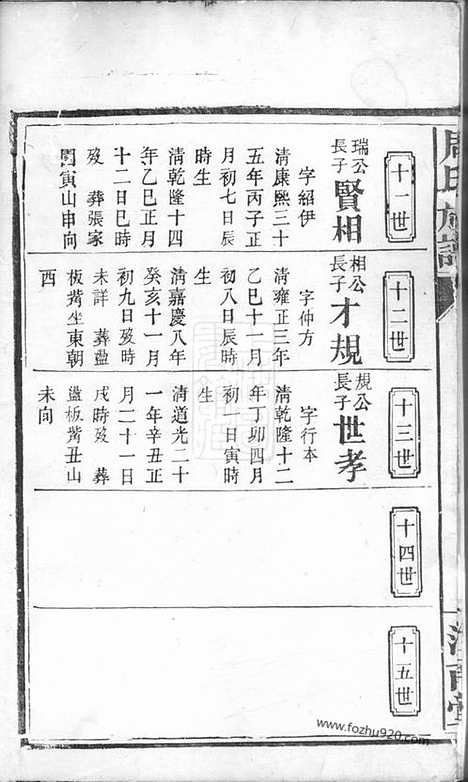 周氏族譜
十一世
瑞公
長子
賢相
字紹伊
清康熙三十
五年丙子正
月初七日辰
時生
清乾隆十四
年乙巳正月
十二日巳時
歿 葬張家
寅山申向
十二世
相公
長子
才規
字仲方
清雍正三年
乙巳十一月
初八日辰時
生
清嘉慶八年
癸亥十一月
初九日歿時
未詳 葬藍
板觜坐東朝
西
十三世
規公
長子
世孝
字行本
清乾隆十二
年丁卯四月
初一日寅時
生
清道光二十
一年辛丑正
月二十一日
戌時歿 葬
藍板觜丑山
未向
十四世
十五世
www.fozhu920.com